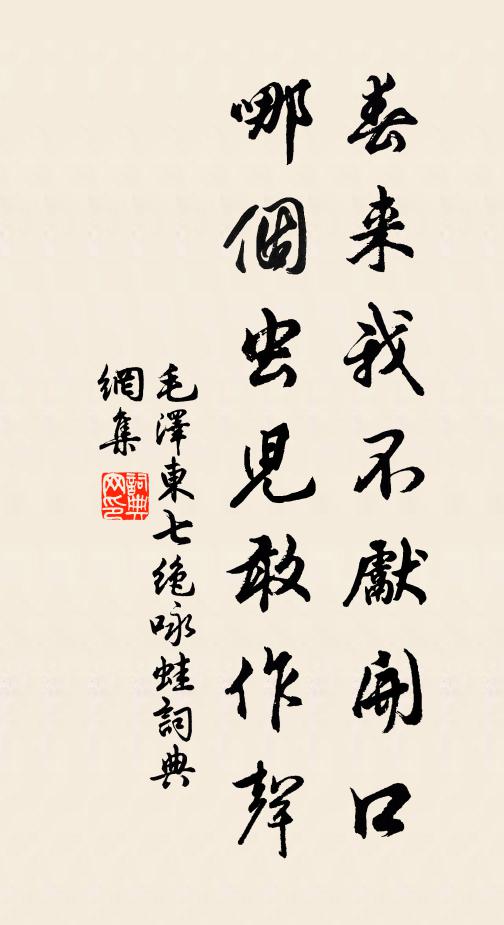 春来我不獻開口
哪個虫児敢作聲
毛澤東七绝咏蛙詞典
網集
詞典网印